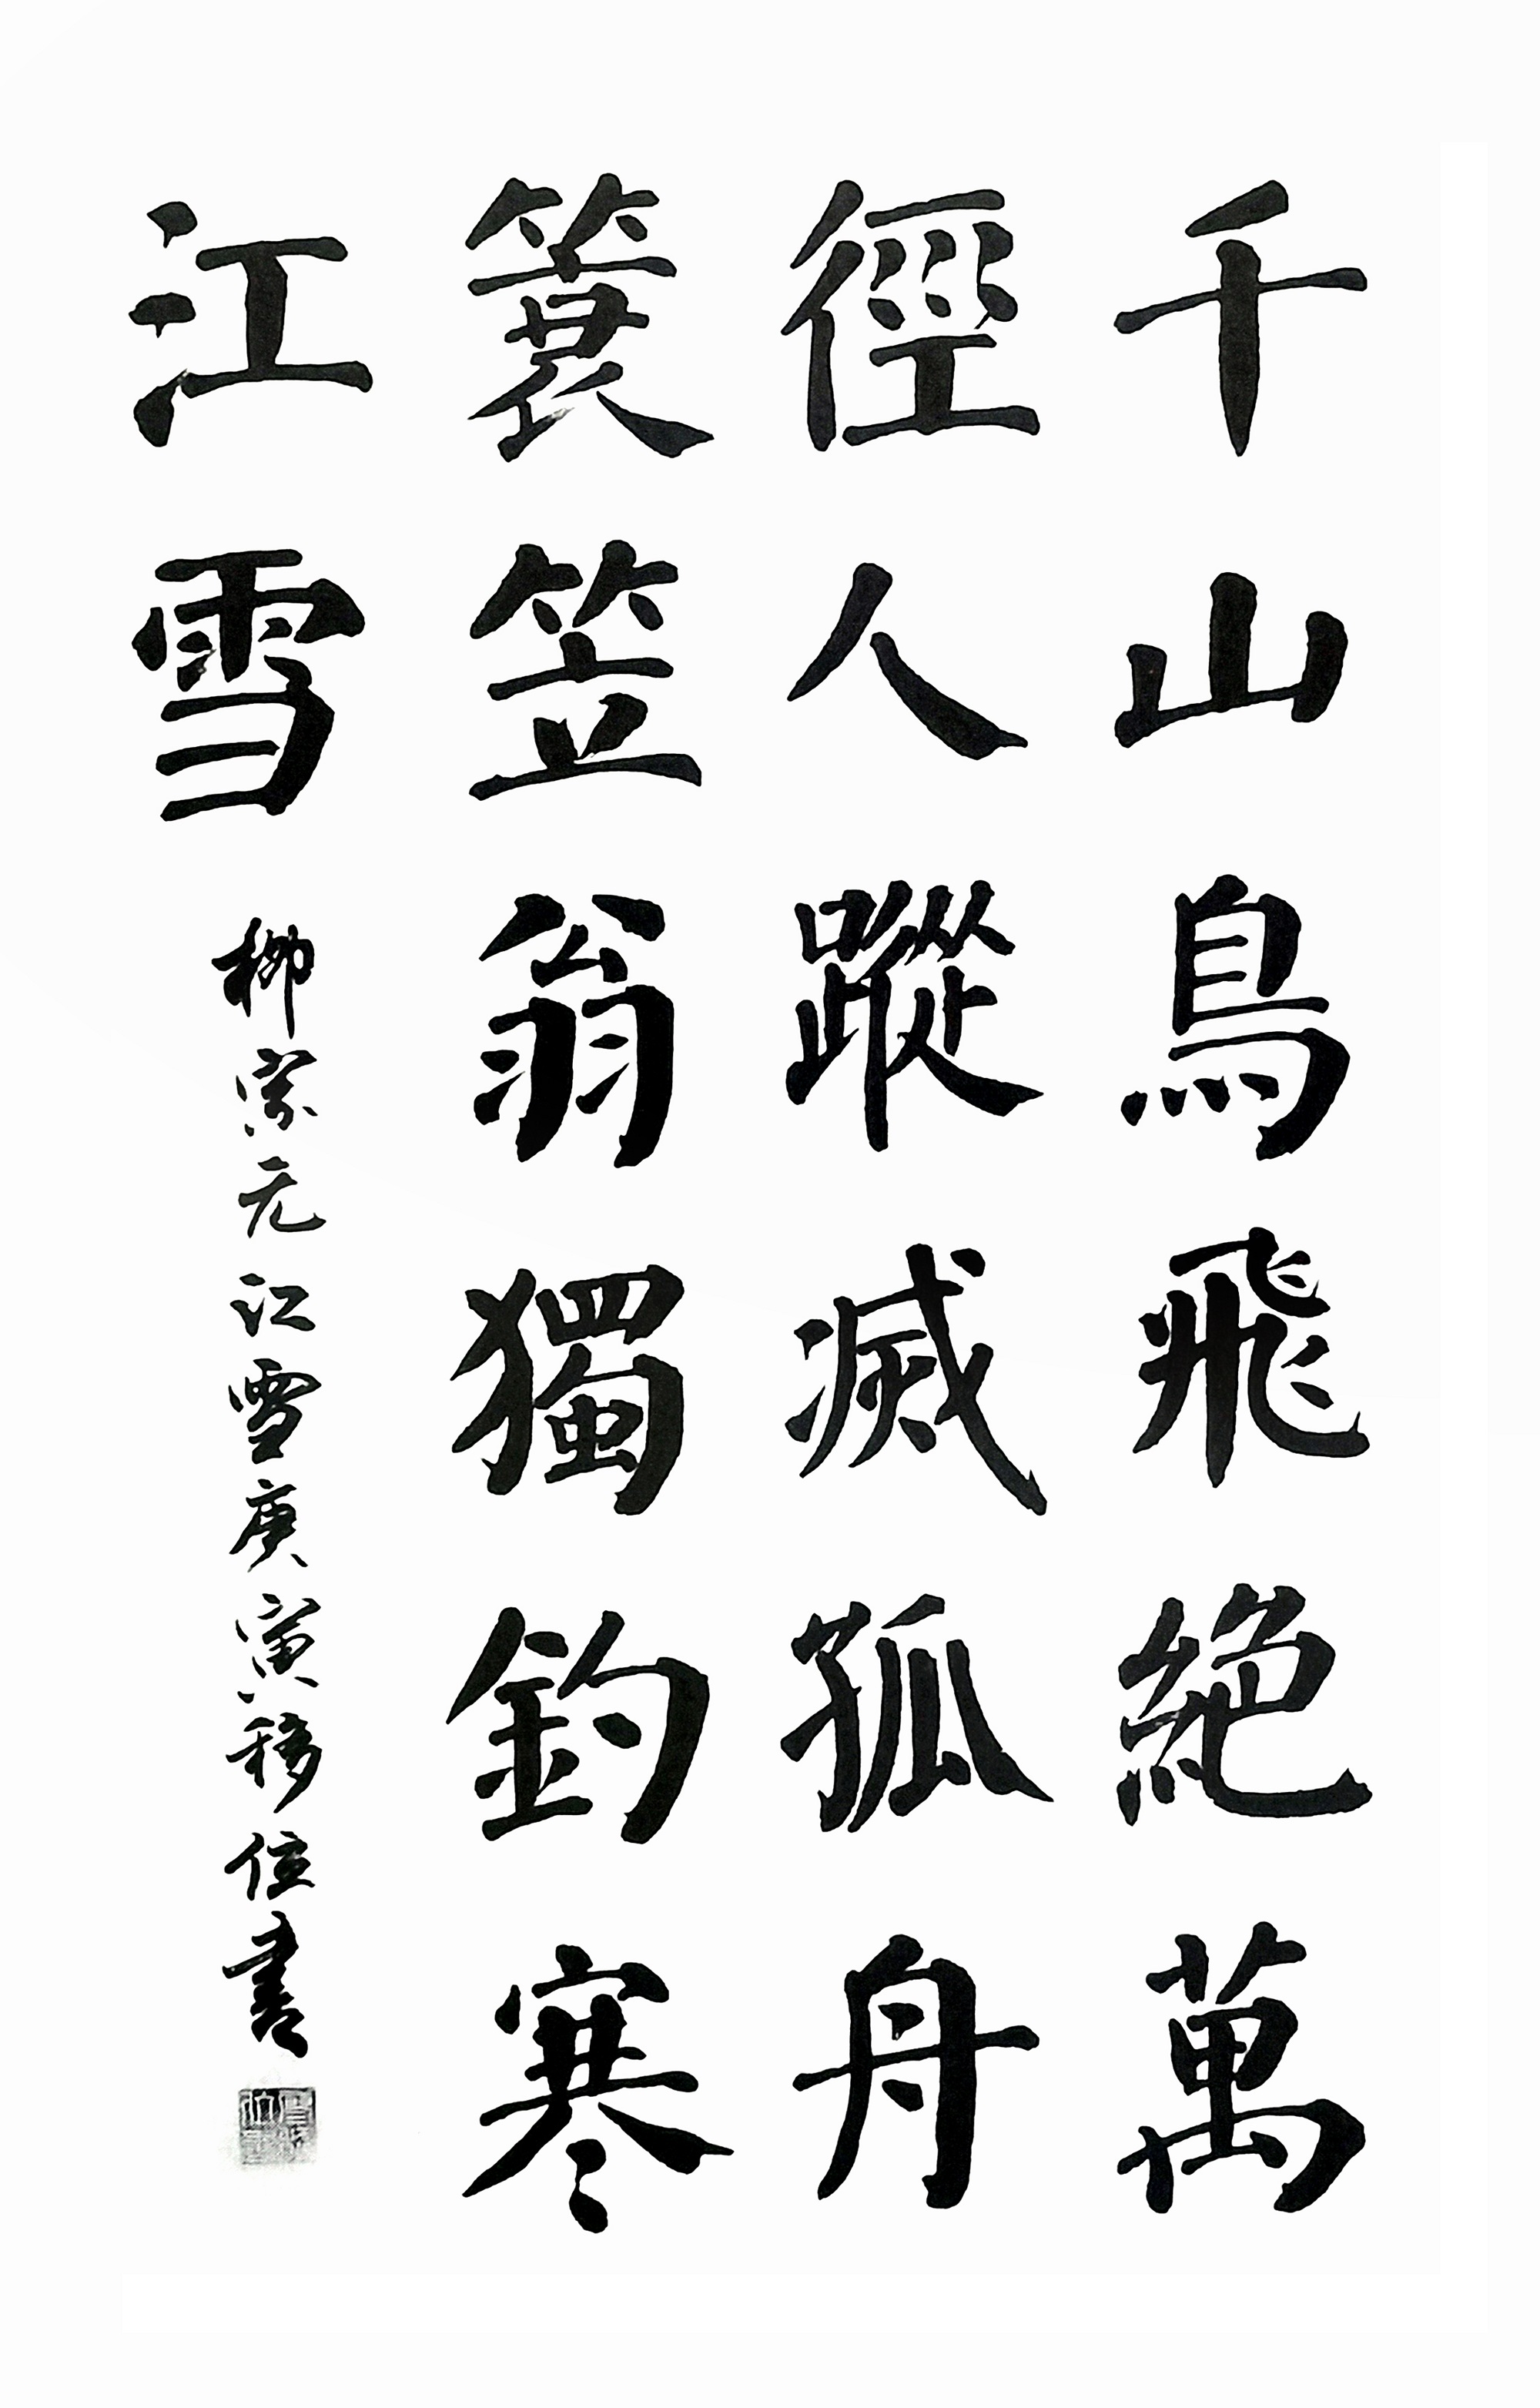 千山鳥飛絕萬
徑人蹤滅孤舟
簑笠翁獨釣寒
江雪
柳宗元江雪庚寅移位書